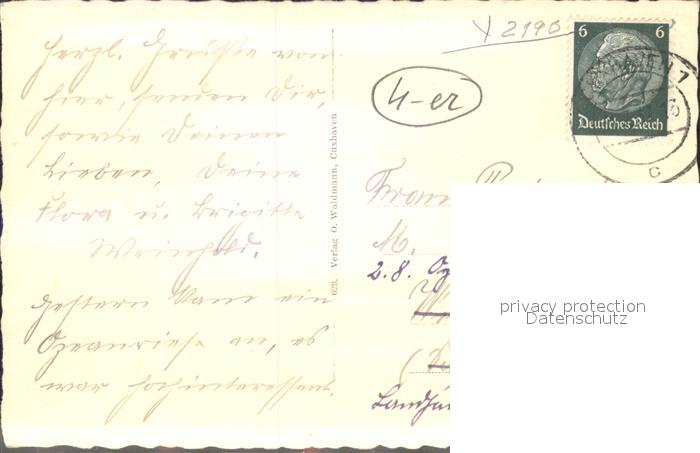 Herzl. Grüße von
hier, senden Dir,
sowie Deinen
Lieben, Deine
Flora u. Brigitte
Weinhold.
Gestern kam ein
Ozeanriese an, es
war hochinteressant.
623. Verlag O. Waldmann, Cuxhaven
2190
4-er
6 6
Deutsches Reich
1
c
M.
2.8.
privacy protection
Datenschutz